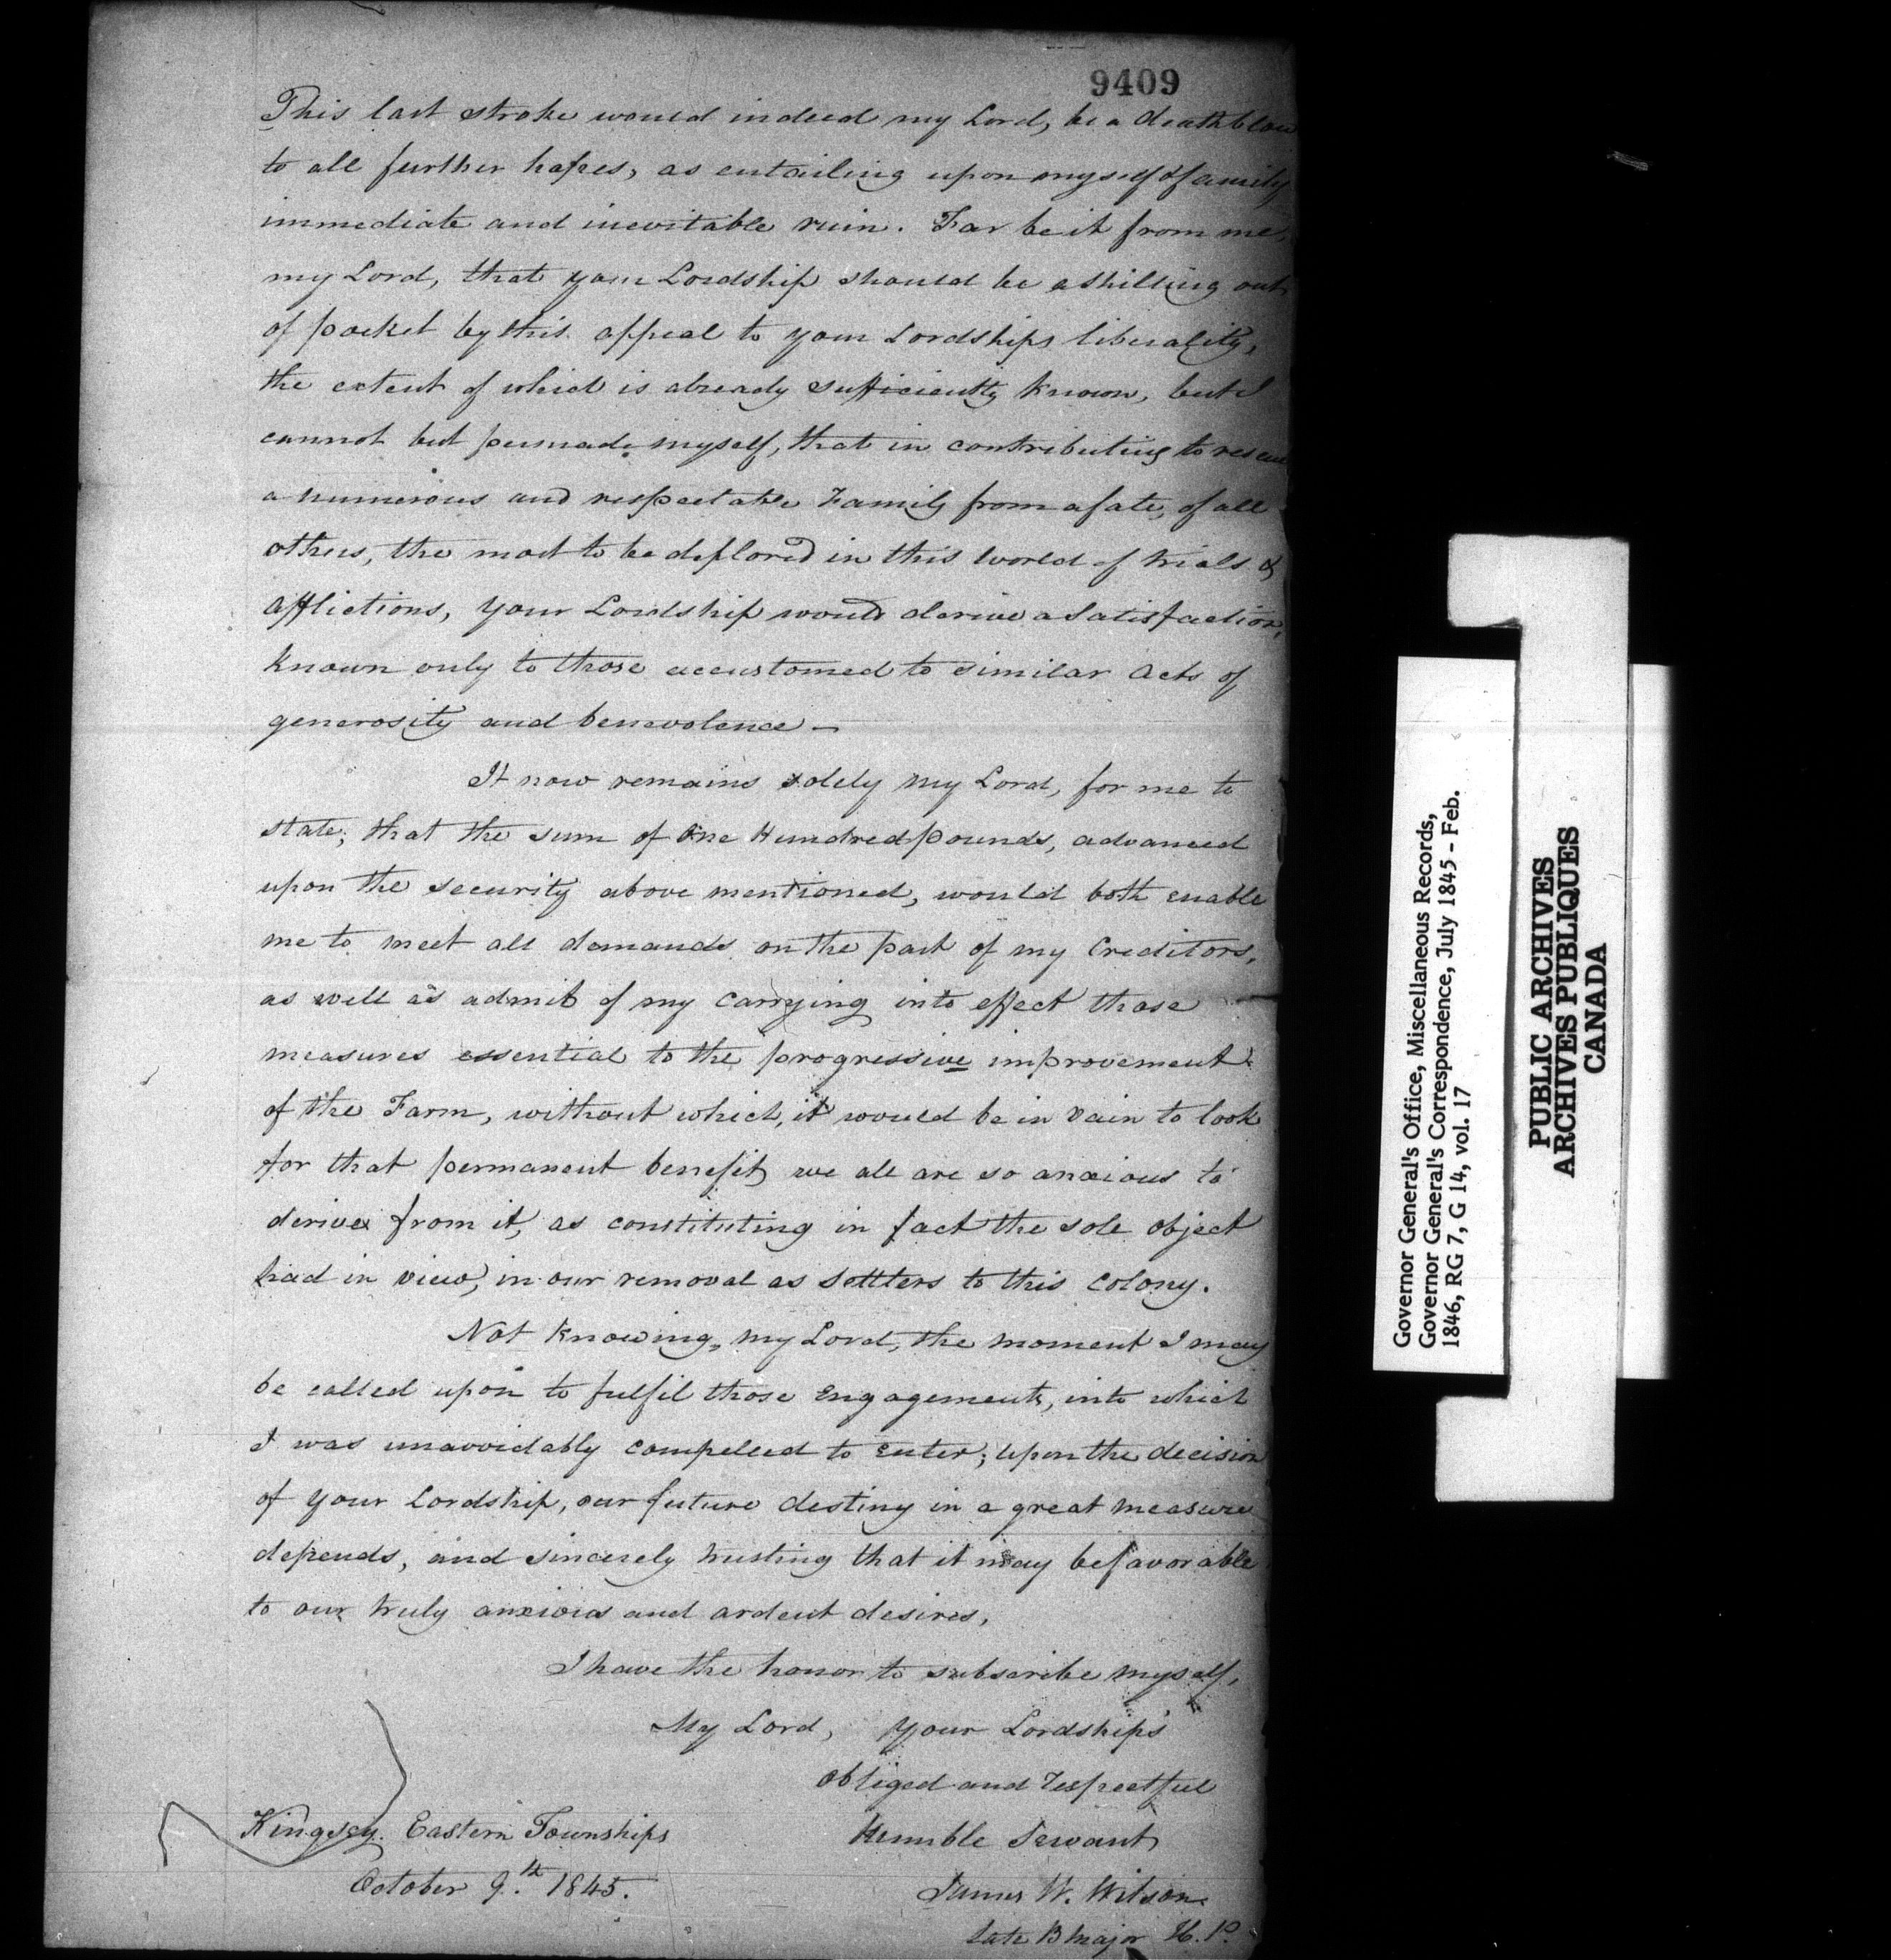 9409
This last stroke would indeed my Lord, be a deathblow
to all further hopes, as entailing upon myself & family
immediate and inevitable ruin. Far be it from me,
my Lord, that your Lordship should be a shilling out
of pocket by this appeal to your Lordships liberality,
the extent of which is already sufficiently known, but I
cannot but persuade myself, that in contributing to rescue
a numerous and respectable Family from a fate, of all
others, the most to be deplored in this world of trials &
afflictions, your Lordship would derive a satisfaction,
known only to those accustomed to similar acts of
generosity and benevolence —
It now remains solely my Lord, for me to
state, that the sum of One Hundred pounds, advanced
upon the security above mentioned, would both enable
me to meet all demands on the part of my Creditors,
as well as admit of my carrying into effect those
measures essential to the progressive improvement
of the Farm, without which, it would be in vain to look
for that permanent benefit we all are so anxious to
derive from it, as constituting in fact the sole object
had in view, in our removal as settlers to this colony.
Not knowing, my Lord, the moment I may
be called upon to fulfil those Engagements, into which
I was unavoidably compelled to enter; upon the decision
of your Lordship, our future destiny in a great measure
depends, and sincerely trusting that it may be favorable
to our truly anxious and ardent desires,
I have the honor to subscribe myself,
My Lord, your Lordships
obliged and respectful
Humble Servant
James W. Wilson
late B Major H. P.
Kingsey Eastern Townships
October 9.th 1845.
Governor General's Office, Miscellaneous Records,
Governor General's Correspondence, July 1845 - Feb.
1846, RG 7, G 14, vol. 17
PUBLIC ARCHIVES
ARCHIVES PUBLIQUES
CANADA